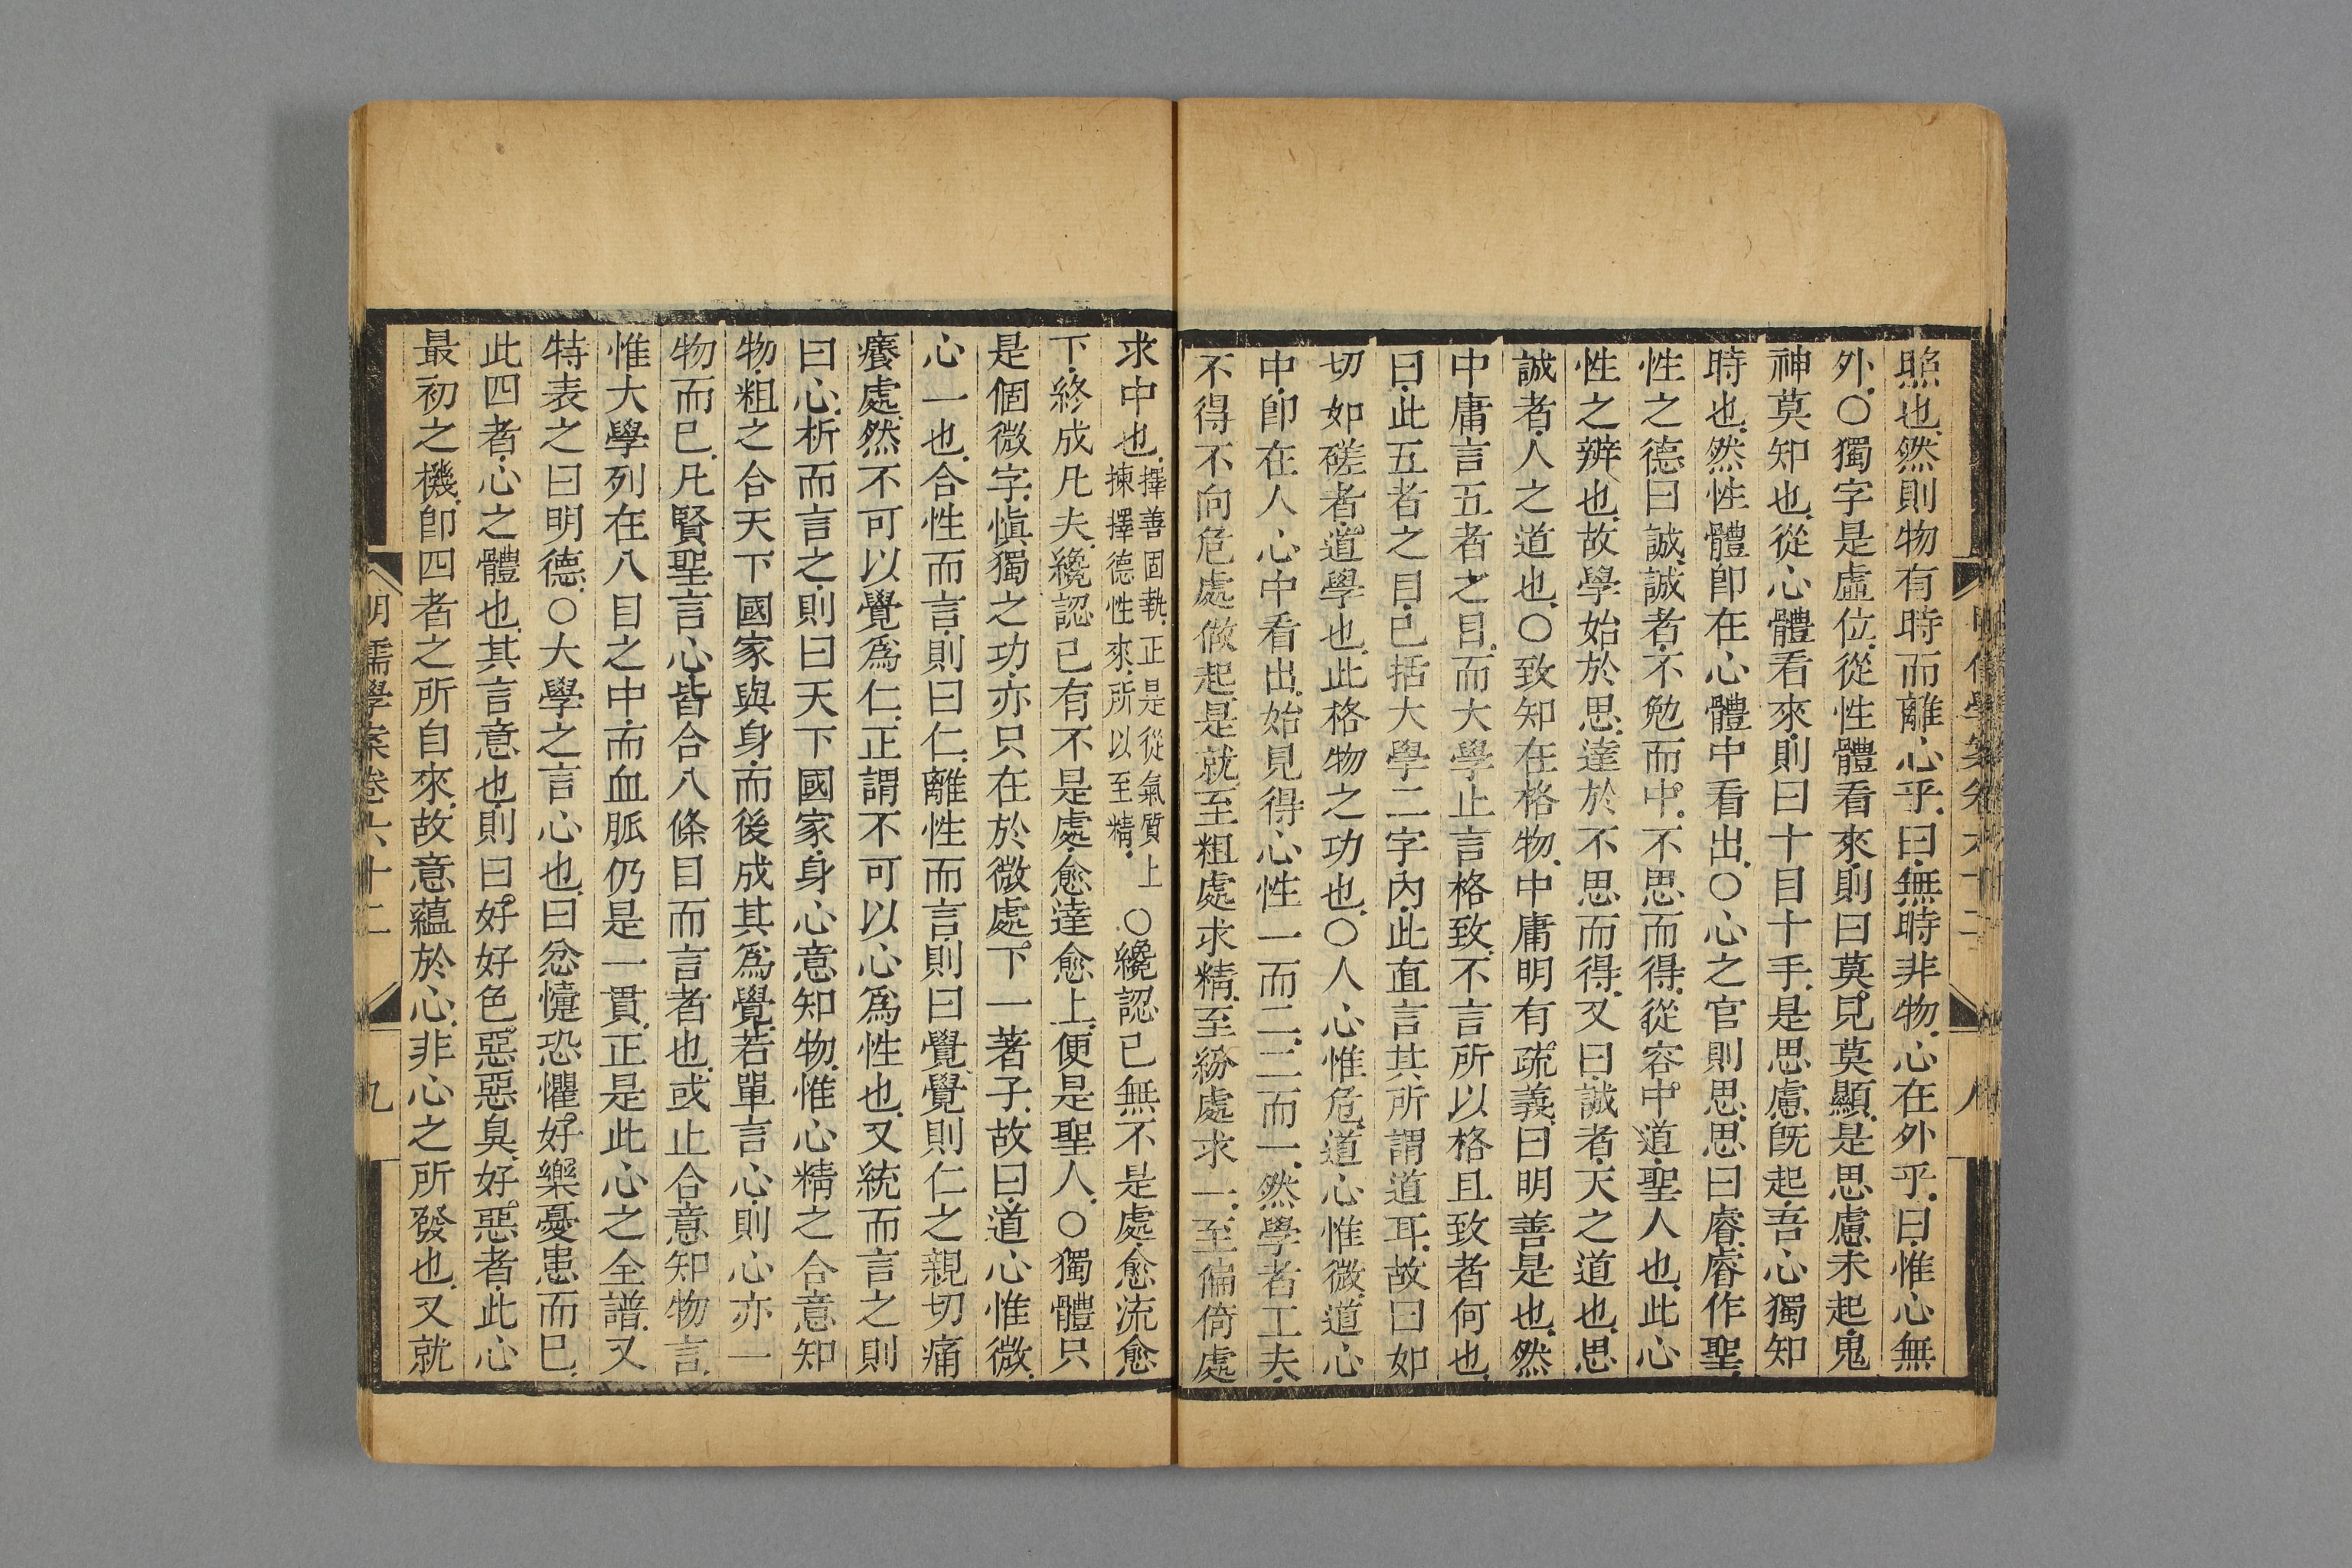 照也然則物有時而離心乎曰無時非物心在外乎曰惟心無
外○獨字是虛位從性體看來則曰莫見莫顯是思慮未起鬼
神莫知也從心體看來則曰十目十手是思慮旣起吾心獨知
時也然性體卽在心體中看出○心之官則思思曰睿睿作聖
性之德曰誠誠者不勉而中不思而得從容中道聖人也此心
性之辨也故學始於思達於不思而得又曰誠者天之道也思
誠者人之道也○致知在格物中庸明有疏義曰明善是也然
中庸言五者之目而大學止言格致不言所以格且致者何也
曰此五者之目已括大學二字內此直言其所謂道耳故曰如
切如磋者道學也此格物之功也○人心惟危道心惟微道心
中卽在人心中看出始見得心性一而二二而一然學者工夫
不得不向危處做起是就至粗處求精至紛處求一至偏倚處
明儒學案卷六十二 八
求中也擇善固執正是從氣質上揀擇德性來所以至精○纔認已無不是處愈流愈
下終成凡夫纔認已有不是處愈達愈上便是聖人○獨體只
是個微字愼獨之功亦只在於微處下一著子故曰道心惟微
心一也合性而言則曰仁離性而言則曰覺覺則仁之親切痛
癢處然不可以覺爲仁正謂不可以心爲性也又統而言之則
曰心析而言之則曰天下國家身心意知物惟心精之合意知
物粗之合天下國家與身而後成其爲覺若單言心則心亦一
物而已凡賢聖言心皆合八條目而言者也或止合意知物言
惟大學列在八目之中而血脈仍是一貫正是此心之全譜又
特表之曰明德○大學之言心也曰忿懥恐懼好樂憂患而已
此四者心之體也其言意也則曰好好色惡惡臭好惡者此心
最初之機卽四者之所自來故意蘊於心非心之所發也又就
明儒學案卷六十二 九